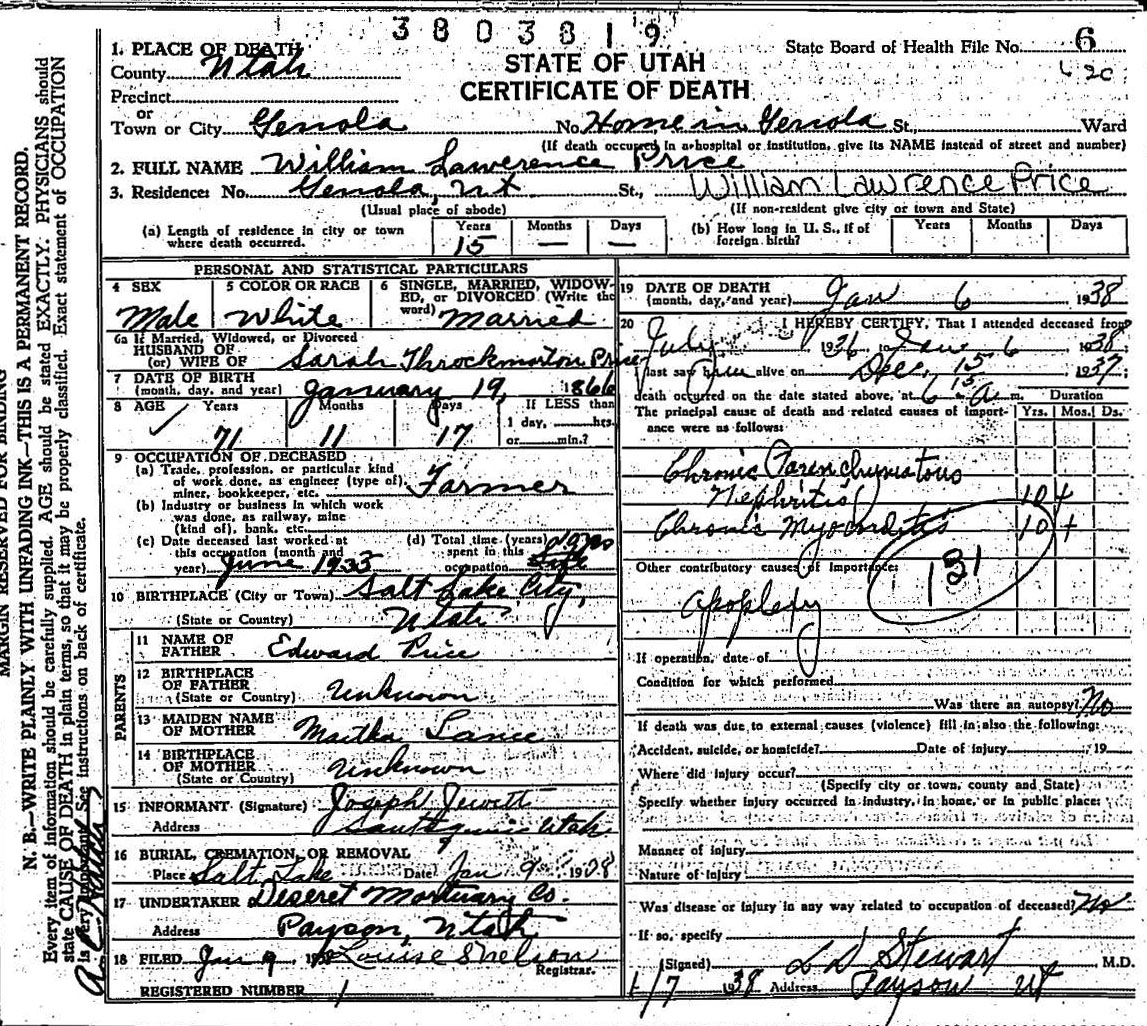 3803819
1. PLACE OF DEATH
County Utah
Precinct
or
Town or City Genola No. Home in Genola St., Ward
STATE OF UTAH
CERTIFICATE OF DEATH
State Board of Health File No. 6
(If death occurred in a hospital or institution, give its NAME instead of street and number)
2. FULL NAME William Lawerence Price
3. Residence: No. Genola, Ut St., William Lawrence Price
(Usual place of abode) (If non-resident give city or town and State)
(a) Length of residence in city or town where death occurred. Years 15 Months — Days —
(b) How long in U. S., if of foreign birth? Years Months Days
PERSONAL AND STATISTICAL PARTICULARS
4 SEX Male
5 COLOR OR RACE White
6 SINGLE, MARRIED, WIDOWED, or DIVORCED (Write the word) Married
6a If Married, Widowed, or Divorced
HUSBAND OF
(or) WIFE OF Sarah Throckmorton Price
7 DATE OF BIRTH
(month, day, and year) January 19, 1866
8 AGE Years 71 Months 11 Days 17 If LESS than 1 day, hrs. or min.?
9 OCCUPATION OF DECEASED
(a) Trade, profession, or particular kind
of work done, as engineer (type of)
miner, bookkeeper, etc. Farmer
(b) Industry or business in which work
was done, as railway, mine
(kind of), bank, etc.
(c) Date deceased last worked at
this occupation (month and
year) June 1935
(d) Total time (years)
spent in this
occupation
10 BIRTHPLACE (City or Town) Salt Lake City,
(State or Country) Utah
PARENTS
11 NAME OF FATHER Edward Price
12 BIRTHPLACE OF FATHER
(State or Country) Unknown
13 MAIDEN NAME OF MOTHER Martha Lance
14 BIRTHPLACE OF MOTHER
(State or Country) Unknown
15 INFORMANT (Signature) Joseph Jewett
Address Santaquin Utah
16 BURIAL, CREMATION, OR REMOVAL
Place Salt Lake Date Jan 9 1938
17 UNDERTAKER Deseret Mortuary Co.
Address Payson, Utah
18 FILED Jan 9 1938 Louise Snelson
Registrar.
REGISTERED NUMBER 1
19 DATE OF DEATH
(month, day, and year) Jan 6 1938
20 I HEREBY CERTIFY, That I attended deceased from
July 1936 to Jan 6 1938
I last saw him alive on Dec. 15 1937
death occurred on the date stated above, at 6 15 A m. Duration
The principal cause of death and related causes of importance were as follows: Yrs. Mos. Ds.
Chronic Parenchymatous
Nephritis 10+
Chronic Myocarditis 10+
Other contributory causes of importance:
131
Apoplexy
If operation, date of
Condition for which performed
Was there an autopsy? No
If death was due to external causes (violence) fill in also the following:
Accident, suicide, or homicide? Date of injury 19
Where did injury occur?
(Specify city or town, county and State)
Specify whether injury occurred in industry, in home, or in public place:
Manner of injury
Nature of injury
Was disease or injury in any way related to occupation of deceased? No
If so, specify
(Signed) L D Stewart M.D.
1/7 1938 Address Payson Ut
MARGIN RESERVED FOR BINDING
N. B.—WRITE PLAINLY WITH UNFADING INK—THIS IS A PERMANENT RECORD.
Every item of information should be carefully supplied. AGE should be stated EXACTLY. PHYSICIANS should
state CAUSE OF DEATH in plain terms, so that it may be properly classified. Exact statement of OCCUPATION
is very important. See instructions on back of certificate.